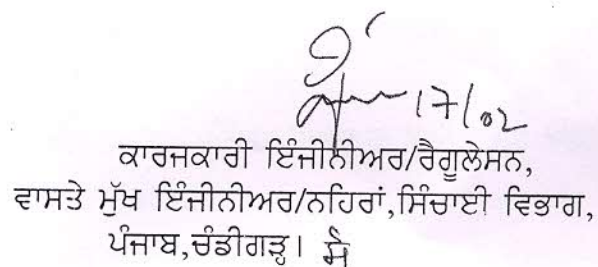 17/02
ਕਾਰਜਕਾਰੀ ਇੰਜੀਨੀਅਰ/ਰੈਗੂਲੇਸਨ,
ਵਾਸਤੇ ਮੁੱਖ ਇੰਜੀਨੀਅਰ/ਨਹਿਰਾਂ,ਸਿੰਚਾਈ ਵਿਭਾਗ,
ਪੰਜਾਬ,ਚੰਡੀਗੜ੍ਹ।